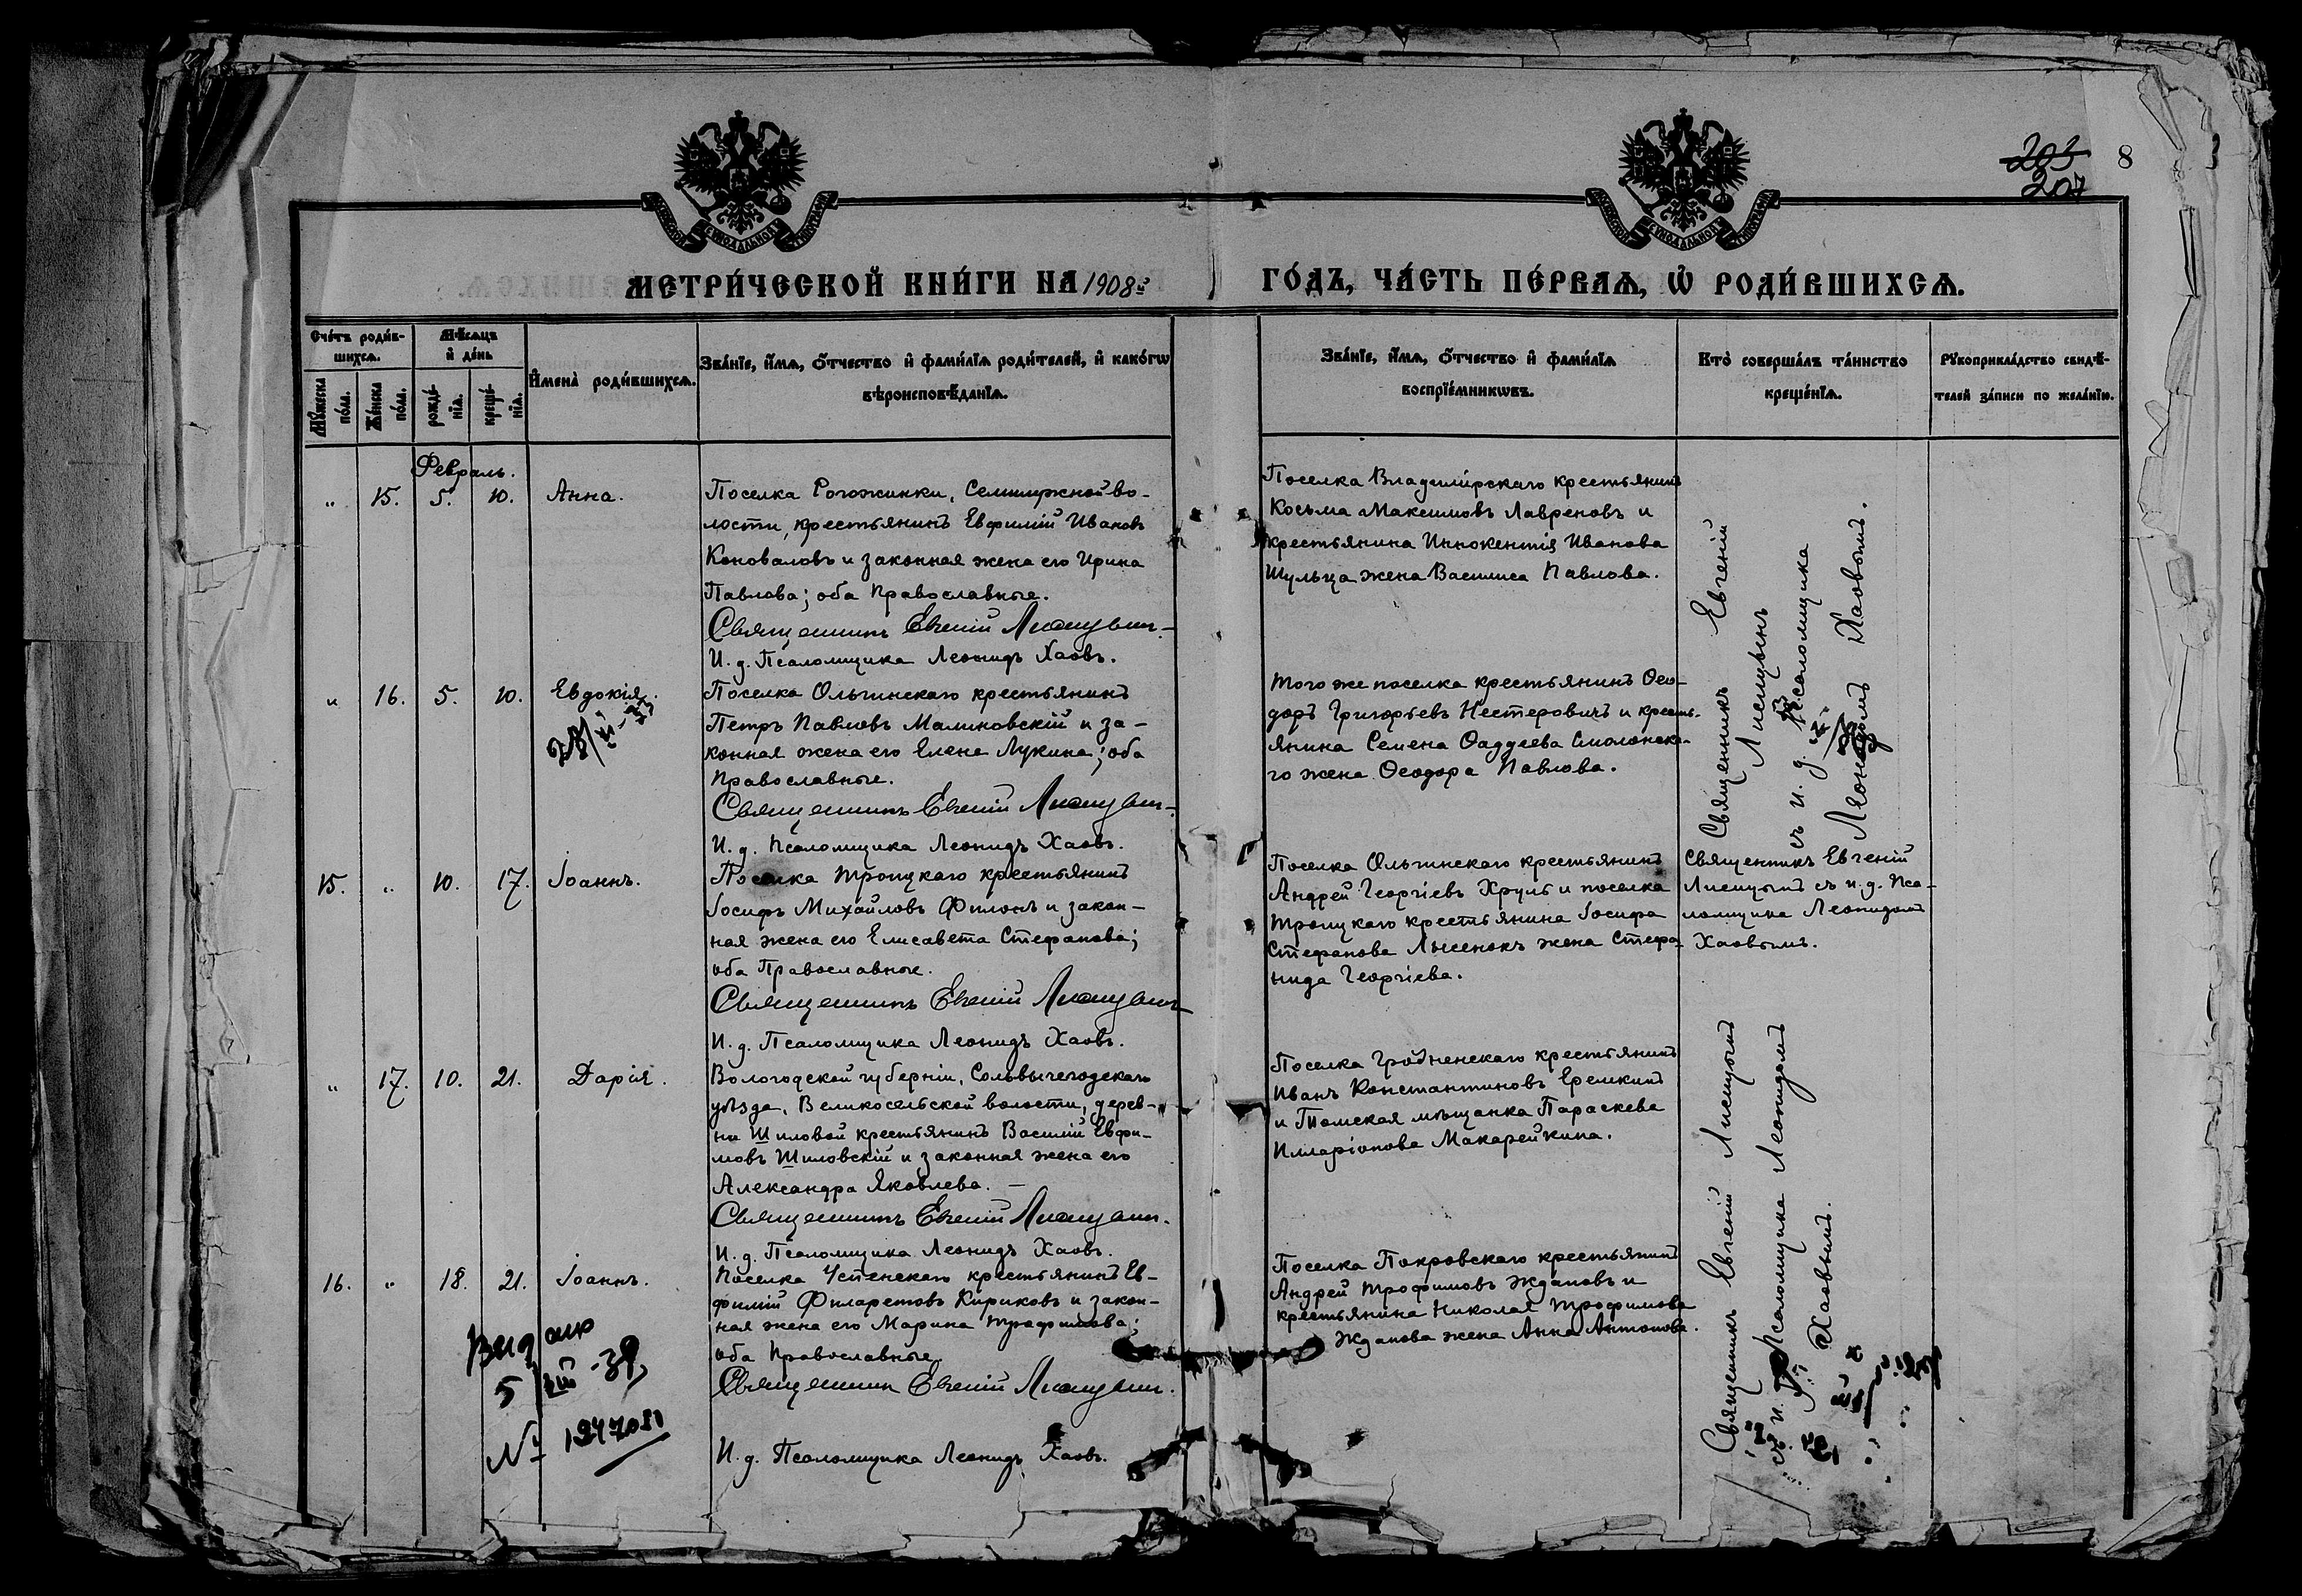 203
207
8
МЕТРИ́ЧЕСКОЙ КНИ́ГИ НА 1908й ГО́ДЪ, ЧА́СТЬ ПЕ́РВАѦ, Ѡ РОДИ́ВШИХСѦ.
Сче́тъ роди́в-
шихсѧ.
Мꙋ́жеска
по́ла.
Же́нска
по́ла.
Мѣ́сѧцъ
и҆ де́нь
рожде́-
нїѧ.
креще́-
нїѧ.
И҆мена̀ роди́вшихсѧ.
Зва́нїе, и҆́мѧ, ѻ҆́тчество и҆ фами́лїѧ роди́телей, и҆ како́гѡ
вѣроисповѣ́данїѧ.
Зва́нїе, и҆́мѧ, ѻ҆́тчество и҆ фами́лїѧ
воспрїе́мникѡвъ.
Кто̀ соверша́лъ та́инство
креще́нїѧ.
Рꙋкоприкла́дство свидѣ́-
телей за́писи по жела́нїю.
Февраль.
" 15. 5. 10. Анна.
Поселка Рогожинки, Семилужной во-
лости, крестьянинъ Евфимій Ивановъ
Коноваловъ и законная жена его Ирина
Павлова; оба Православные.
Священникъ Евгеній Лисицынъ.
И. д. Псаломщика Леонидъ Хаовъ.
Поселка Владимірскаго крестьянинъ
Косьма Максимовъ Лавреновъ и
крестьянина Иннокентія Иванова
Шульца жена Василиса Павлова.
Священникъ Евгеній
Лисицынъ
съ и. д. Псаломщика
Леонидомъ Хаовымъ.
" 16. 5. 10. Евдокія.
Поселка Ольгинскаго крестьянинъ
Петръ Павловъ Малиновскій и за-
конная жена его Елена Лукина; оба
Православные.
Священникъ Евгеній Лисицынъ.
И. д. Псаломщика Леонидъ Хаовъ.
Того же поселка крестьянинъ Ѳео-
доръ Григорьевъ Нестеровичъ и кресть-
янина Семена Ѳаддеева Смолонска-
го жена Ѳеодора Павлова.
15. " 10. 17. Іоаннъ.
Поселка Троицкаго крестьянинъ
Іосифъ Михайловъ Филонъ и закон-
ная жена его Елисавета Стефанова;
оба Православные.
Священникъ Евгеній Лисицынъ
И. д. Псаломщика Леонидъ Хаовъ.
Поселка Ольгинскаго крестьянинъ
Андрей Георгіевъ Хруль и поселка
Троицкаго крестьянина Іосифа
Стефанова Лысенокъ жена Стефа-
нида Георгіева.
Священникъ Евгеній
Лисицынъ съ и. д. Пса-
ломщика Леонидомъ
Хаовымъ.
" 17. 10. 21. Дарія.
Вологодской губерніи, Сольвычегодскаго
уѣзда, Великосельской волости, дерев-
ни Шиловой крестьянинъ Василій Евфи-
мовъ Шиловскій и законная жена его
Александра Яковлева. —
Священникъ Евгеній Лисицынъ.
И. д. Псаломщика Леонидъ Хаовъ.
Поселка Гродненскаго крестьянинъ
Иванъ Константиновъ Еремкинъ
и Томская мѣщанка Параскева
Илларіонова Макарейкина.
Священникъ Евгеній Лисицынъ
съ и. д. Псаломщика Леонидомъ
Хаовымъ.
16. " 18. 21. Іоаннъ.
Поселка Успенскаго крестьянинъ Ев-
фимій Филаретовъ Кириковъ и закон-
ная жена его Марина Трофимова;
оба Православные
Священникъ Евгеній Лисицынъ.
И. д. Псаломщика Леонидъ Хаовъ.
Поселка Покровскаго крестьянинъ
Андрей Трофимовъ Ждановъ и
крестьянина Николая Трофимова
Жданова жена Анна Антонова.